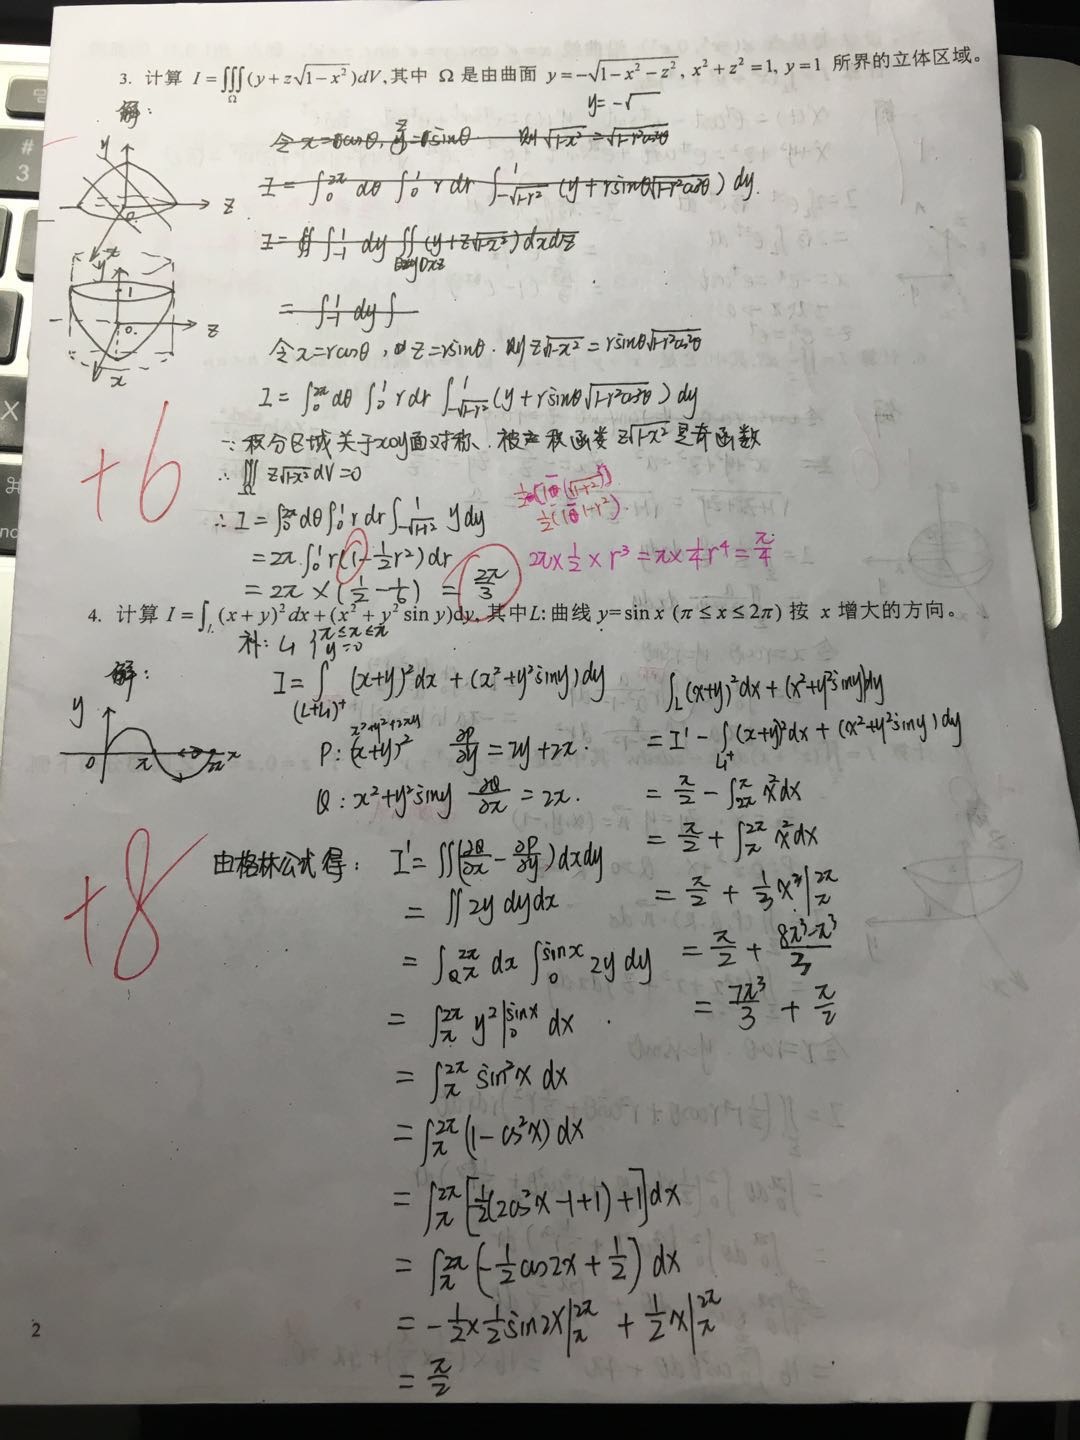 3. 计算 I=∭_Ω(y+z√(1-x²))dV,其中 Ω 是由曲面 y=-√(1-x²-z²), x²+z²=1, y=1 所界的立体区域。
y=-√
解:
令x=rcosθ, z=rsinθ 则√(1-x²)=√(1-r²cos²θ)
I=∫₀^{2π}dθ∫₀¹rdr∫_{-√(1-r²)}^1(y+rsinθ√(1-r²cos²θ))dy.
I=∫₋₁¹dy∬(y+z√(1-x²))dxdz
=∫₋₁¹dy∫
令x=rcosθ, z=rsinθ. 则z√(1-x²)=rsinθ√(1-r²cos²θ)
I=∫₀^{2π}dθ∫₀¹rdr∫_{-√(1-r²)}^1(y+rsinθ√(1-r²cos²θ))dy
∵积分区域关于xoy面对称、被积函数z√(1-x²)是奇函数
∴∭_Ω z√(1-x²)dV=0
∴I=∫₀^{2π}dθ∫₀¹rdr∫_{-√(1-r²)}^1 ydy
=2π∫₀¹r(1-½r²)dr
2π×½×r³=π×¼r⁴=π/4
=2π×(1/2-1/6)=2π/3
+6
y
z
o
x
y
1
z
o
x
4. 计算 I=∫_L(x+y)²dx+(x²+y²sin y)dy,其中L:曲线 y=sin x (π≤x≤2π) 按 x 增大的方向。
补:L₁{π≤x≤π
y=0
解:
I=∫_{(L+L₁)⁺}(x+y)²dx+(x²+y²siny)dy
x²+y²+2xy
P:(x+y)² ∂P/∂y=2y+2x.
Q:x²+y²siny ∂Q/∂x=2x.
由格林公式得: I'=∬(∂Q/∂x-∂P/∂y)dxdy
=∬2ydydx
=∫_π^{2π}dx∫₀^{sinx}2ydy
=∫_π^{2π}y²|₀^{sinx}dx
=∫_π^{2π}sin²xdx
=∫_π^{2π}(1-cos²x)dx
=∫_π^{2π}[½(2cos²x-1+1)+1]dx
=∫_π^{2π}(-½cos2x+½)dx
=-½×½sin2x|_π^{2π}+½x|_π^{2π}
=π/2
∫_L(x+y)²dx+(x²+y²siny)dy
=I'-∫_{L₁⁺}(x+y)²dx+(x²+y²siny)dy
=π/2-∫_{2π}^π x²dx
=π/2+∫_π^{2π}x²dx
=π/2+⅓x³|_π^{2π}
=π/2+(8π³-π³)/3
=7π³/3+π/2
+8
y
o
π
2π
x
2
#
3
X
⌘